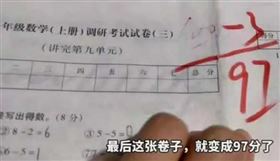 年级数学(上册)调研考试试卷(三)
(讲完第九单元)
二 三 四 五 六 总分
-3
97
接写出得数。(8分)
②8-2=6 ③5-5=0
6-5=1
最后这张卷子,就变成97分了